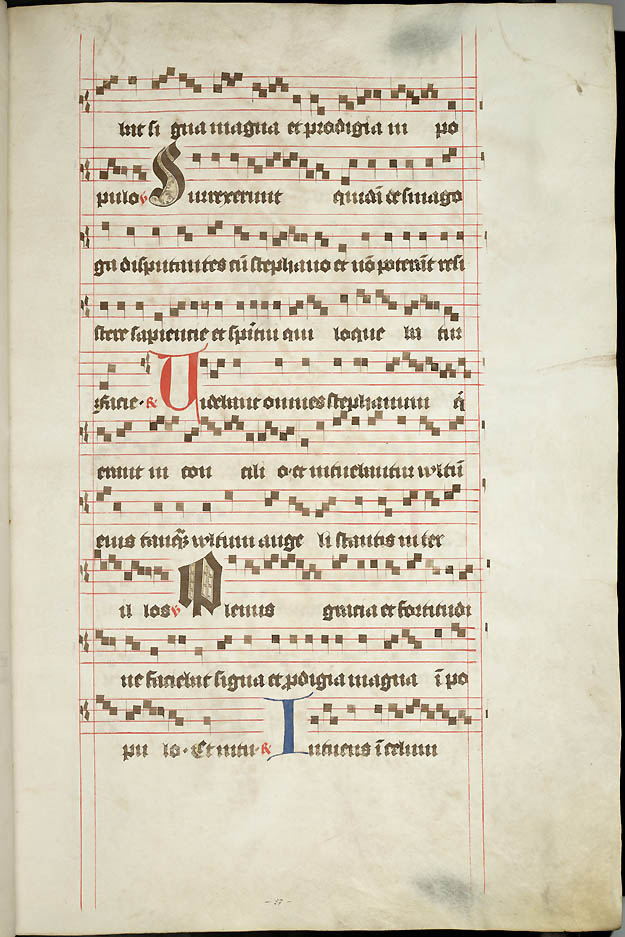 bat si gna magna et prodigia in po
pulo v Surrexerunt quidā de sinago
ga disputantes cū stephano et nō poterāt resi
stere sapiencie et spiritui qui loque ba tur
facie · R Videbant omnes stephanum q̄
erant in con cili o · et intuebantur vultū
eius tanq̄ vultum ange li stantis inter
il los v Plenus gracia et fortitudi
ne faciebat signa et pdigia magna ī po
pu lo · Et intu · R Intuens ī celum
- 57 -